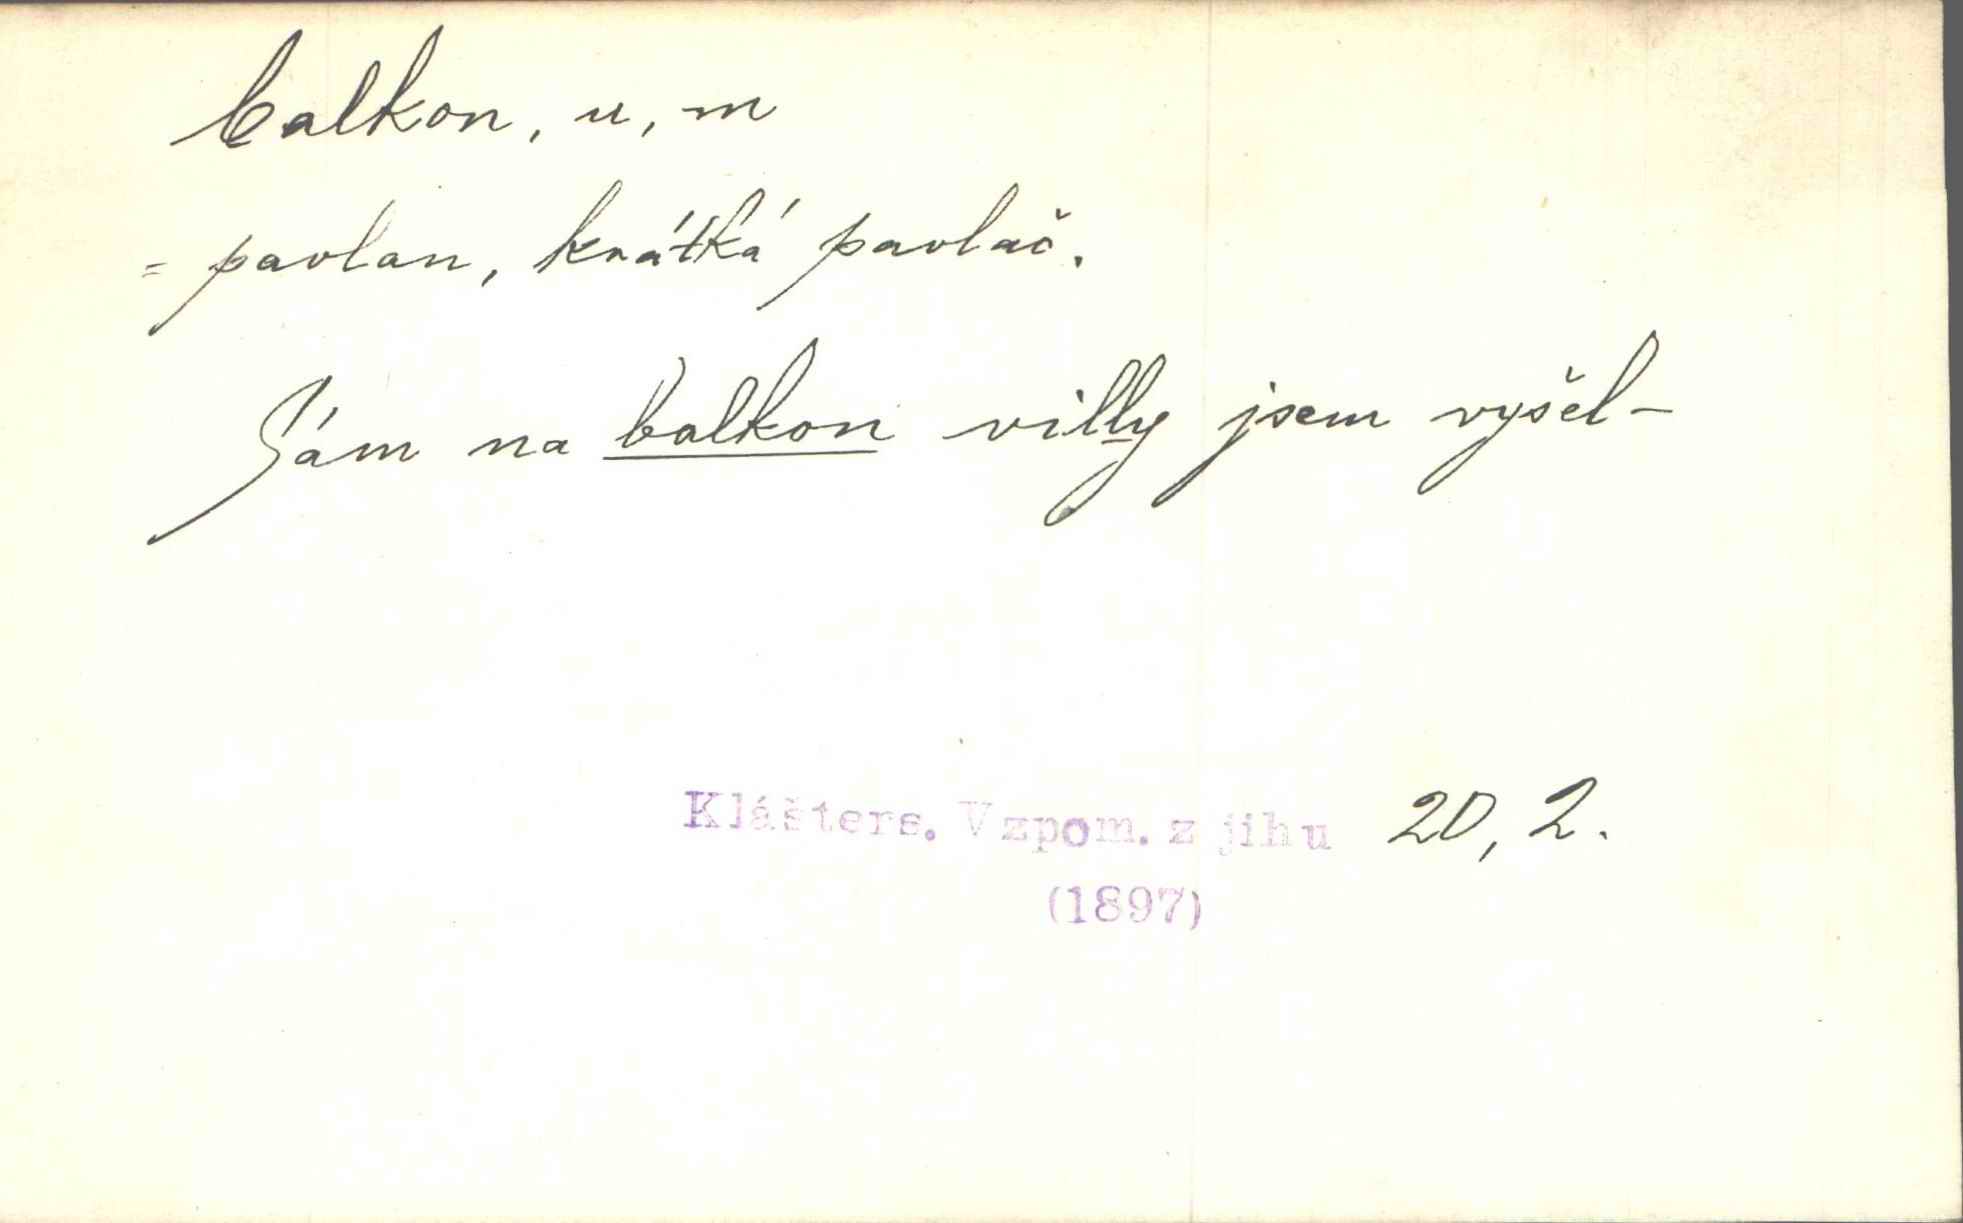 balkon, u, m
= pavlan, krátká pavlač.
Sám na balkon villy jsem vyšel –
Klášters. Vzpom. z jihu 20, 2.
(1897)